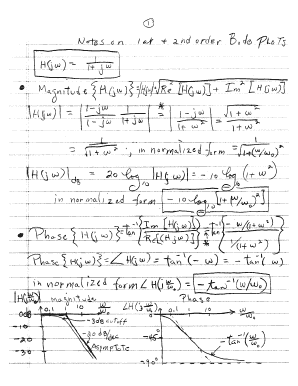 ①
Notes on 1st + 2nd order Bode Plots
H(jω) = 1/(1+jω)
• Magnitude {H(jω)} = |H(jω)| = √(Re²[H(jω)] + Im²[H(jω)])
|H(jω)| = |(1-jω)/(1-jω) · 1/(1+jω)| = |(1-jω)/(1+ω²)| = √(1+ω²)/(1+ω²)
= 1/√(1+ω²) ; in normalized form = 1/√(1+(ω/ω₀)²)
|H(jω)|dB = 20 log₁₀ |H(jω)| = -10 log₁₀ (1+ω²)
in normalized form -10 log₁₀ [1+(ω/ω₀)²]
• Phase {H(jω)} = tan⁻¹ {Im[H(jω)]/Re[H(jω)]} = tan⁻¹ {(-ω/(1+ω²))/(1/(1+ω²))}
Phase {H(jω)} = ∠H(jω) = tan⁻¹(-ω) = -tan⁻¹(ω)
in normalized form ∠H(jω/ω₀) = -tan⁻¹(ω/ω₀)
|H(jω)| magnitude ∠H(jω/ω₀) Phase
0dB 0.1 1 10 ω/ω₀ 0.1 1 10 ω/ω₀
-3dB cutoff
-10
-20 Asymptote -45° -tan⁻¹(ω/ω₀)
-30
-90°